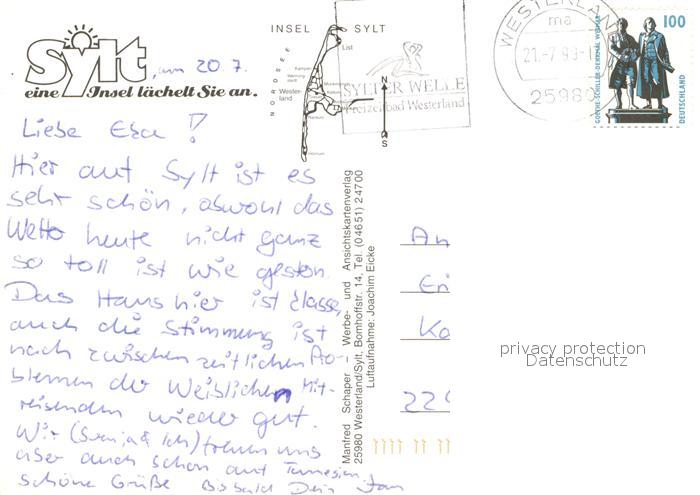 Sylt
, am 20.7.
eine Insel lächelt Sie an.
Liebe !
Hier auf Sylt ist es
sehr schön, obwohl das
Wetter heute nicht ganz
so toll ist wie gestern.
Das Haus hier ist klasse,
auch die Stimmung ist
nach zwischenzeitlichen Pro-
blemen der Weiblichen Mit-
reisenden wieder gut.
Wir (Svenja & Ich) freuen uns
aber auch schon auf Tunesien
schöne Grüße Bis bald Dein Jan
INSEL SYLT
NORDSEE
List
Kampen
Westerland
Rantum
Hörnum
N
S
SYLTER WELLE
Freizeitbad Westerland
WESTERLAN
ma
21.-7.99-1
25980
100
GOETHE-SCHILLER-DENKMAL WEIMAR
DEUTSCHLAND
Manfred Schaper Werbe- und Ansichtskartenverlag
25980 Westerland/Sylt, Bomhoffstr. 14, Tel. (04651) 24700
Luftaufnahme: Joachim Eicke
An
Ko
22
privacy protection
Datenschutz